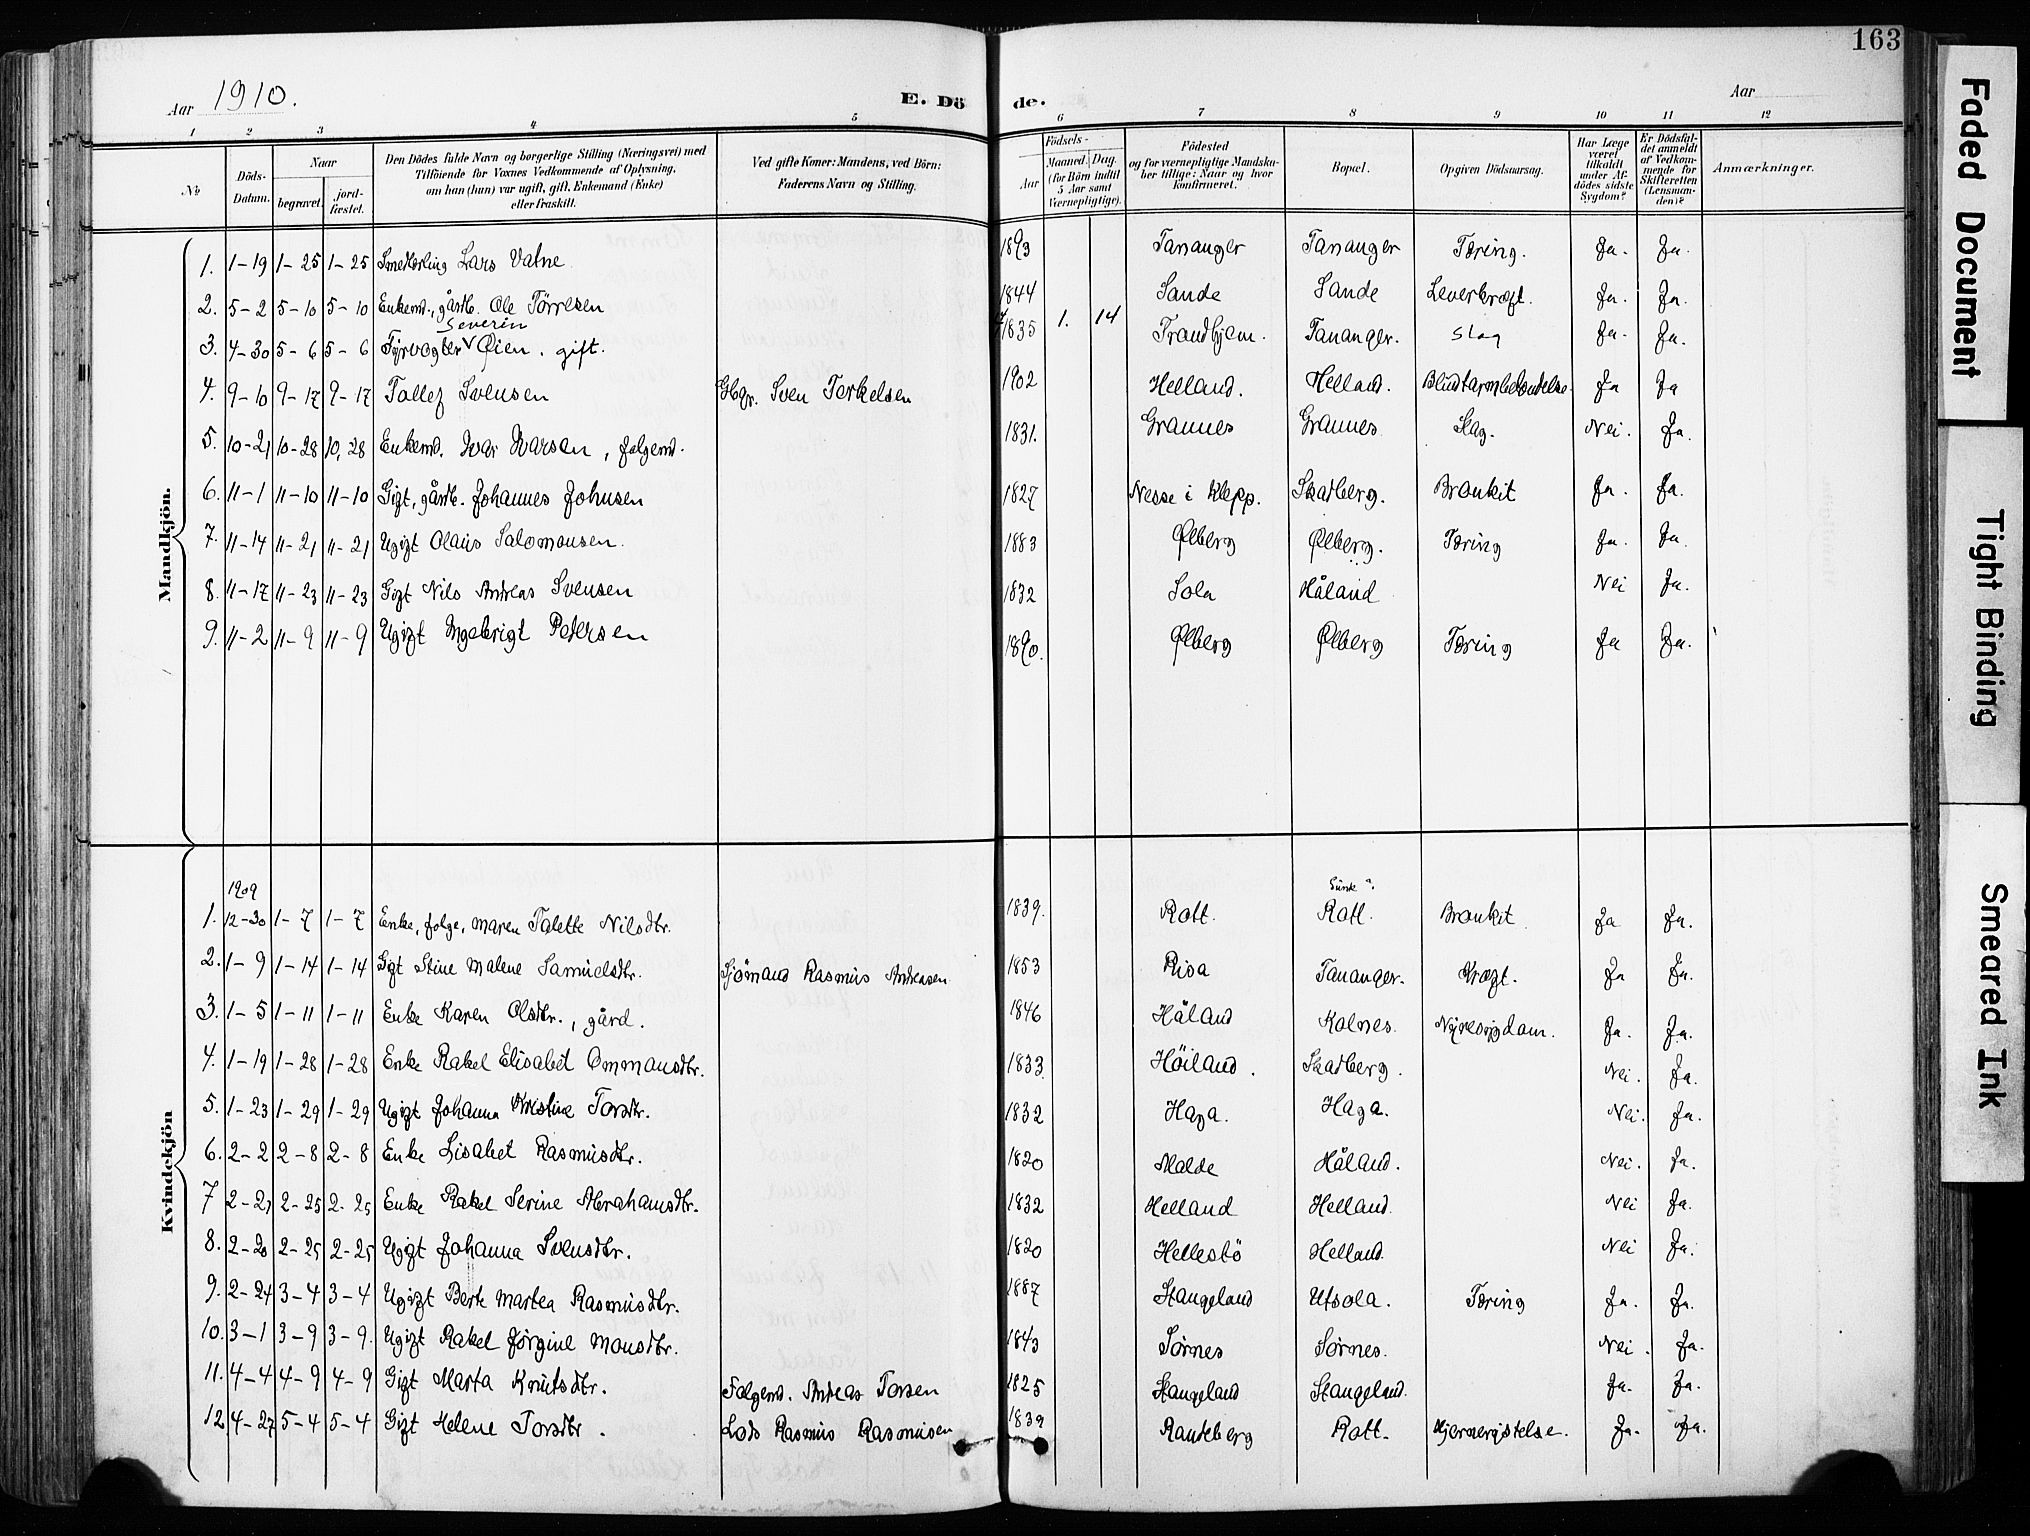 163
Aar 1910.
E. Dö
de.
Aar
1 2 3 4 5 6 7 8 9 10 11 12
No
Döds-Datum.
Naar
begravet.
jord-fæstet.
Den Dödes fulde Navn og borgerlige Stilling (Næringsvei) med
Tilföiende for Voxnes Vedkommende af Oplysning,
om han (hun) var ugift, gift, Enkemand (Enke)
eller fraskilt.
Ved gifte Koner: Mandens, ved Børn:
Faderens Navn og Stilling.
Födsels-
Aar
Maaned. Dag.
(for Börn indtil
5 Aar samt
Værnepligtige).
Födested
og for værnepligtige Mandska-
ber tillige: Naar og hvor
konfirmeret.
Bopæl.
Opgiven Dödsaarsag.
Har Læge
været
tilkaldt
under Af-
dödes sidste
Sygdom?
Er Dödsfal-
det anmeldt
af Vedkom-
mende for
Skifteretten
(Lensman-
den)?
Anmærkninger.
Mandkjön.
1. 1-19 1-25 1-25 Smedlærling Lars Vatne 1893 Tananger Tananger Tæring. Ja. Ja.
2. 5-2 5-10 5-10 Enkemd., gårdb. Ole Tørresen 1844 Sande Sande Leverkræft. Ja. Ja.
Severin
3. 4-30 5-6 5-6 Fyrvogter Øien. gift. 1835 1. 14 Trondhjem. Tananger. Slag Ja. Ja.
4. 9-10 9-17 9-17 Tollef Svensen Gbgr. Sven Terkelsen 1902 Helland. Helland. Blindtarmbetændelse. Ja Ja
5. 10-21 10-28 10,28 Enkemd. Ivar Ivarsen, folgemd. 1831. Grannes Grannes Slag. Nei. Ja.
6. 11-1 11-10 11-10 Gift, gårdb. Johannes Johnsen 1827 Nesse i Klepp. Skadberg. Bronkit Ja. Ja.
7. 11-14 11-21 11-21 Ugift Olaus Salomonsen. 1883 Ølberg Ølberg. Tæring Ja. Ja.
8. 11-17 11-23 11-23 Gift Nils Andreas Svensen 1832 Sola Håland Nei Ja.
9. 11-2 11-9 11-9 Ugift Ingebrigt Petersen 1890. Ølberg Ølberg Tæring Ja Ja.
Kvindekjön
1909
1. 12-30 1-7 1-7 Enke, folge, Maren Talette Nilsdtr. 1839. Rott. Rott. Bronkit Ja Ja.
2. 1-9 1-14 1-14 Gift Stine Malene Samuelsdtr. Sjømand Rasmus Andreasen 1853 Risa Tananger. Kræft. Ja Ja.
3. 1-5 1-11 1-11 Enke Karen Olsdtr., gård. 1846 Håland Kolnes. Nyresygdom. Ja. Ja.
4. 1-19 1-28 1-28 Enke Rakel Elisabet Ommansdtr. 1833. Høiland. Skadberg. Nei. Ja.
5. 1-23 1-29 1-29 Ugift Johanna Kristine Torsdtr. 1832 Haga. Haga. Nei. Ja.
6. 2-2 2-8 2-8 Enke Lisabet Rasmusdtr. 1820 Malde Håland. Nei. Ja.
7 2-21 2-25 2-25 Enke Rakel Serine Abrahamsdtr. 1832 Helland Helland. Nei Ja.
8. 2-20 2-25 2-25 Ugift Johanna Svensdtr. 1820 Hellestö Helland. Nei Ja.
9. 2-24 3-4 3-4 Ugift Berte Martea Rasmusdtr. 1887 Stangeland Utsola. Tæring Ja. Ja.
10. 3-1 3-9 3-9. Ugift Rakel Jørgine Monsdtr. 1843 Sørnes Sørnes. Nei. Ja.
11. 4-4 4-9 4-9 Gift Marta Knutsdtr. Folgemd. Andreas Torsen 1825 Stangeland Stangeland. Ja. Ja.
12. 4-27 5-4 5-4 Gift Helene Torsdtr. Lods Rasmus Rasmussen 1839 Randeberg Rott. Hjernerystelse. Ja. Ja.
Faded Document
Tight Binding
Smeared Ink